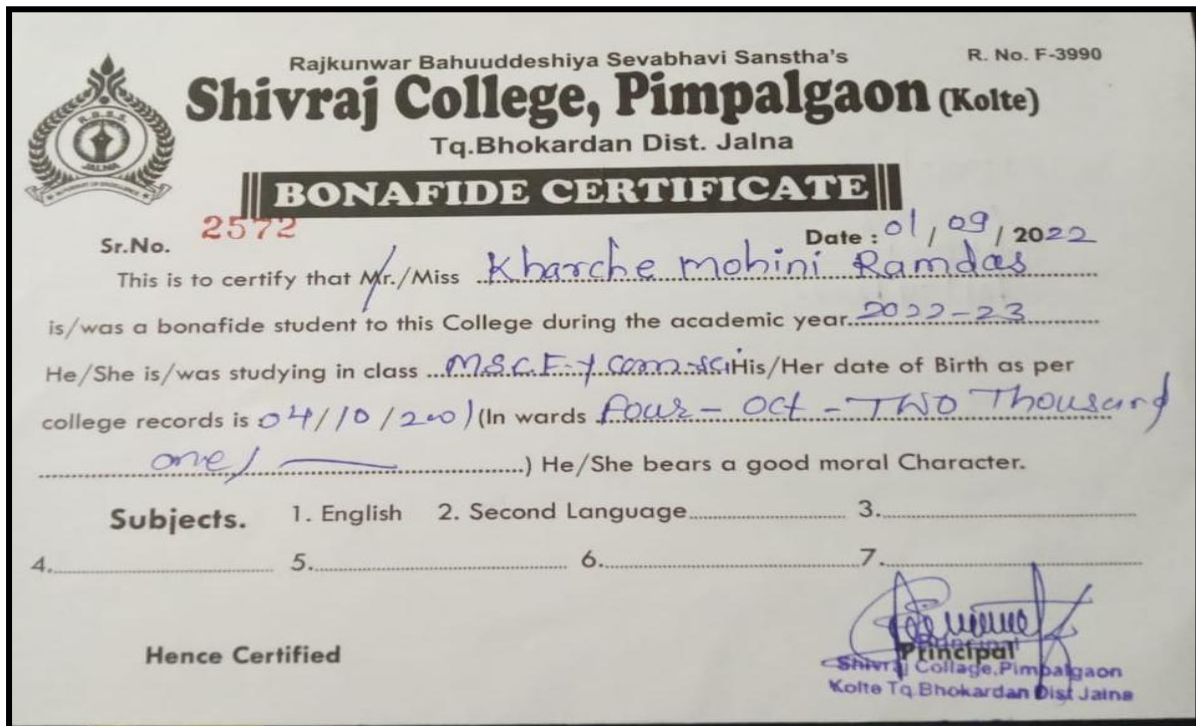 Rajkunwar Bahuuddeshiya Sevabhavi Sanstha's
R. No. F-3990
Shivraj College, Pimpalgaon (Kolte)
Tq.Bhokardan Dist. Jalna
R.B.S.S.
JALNA
BONAFIDE CERTIFICATE
Sr.No. 2572
Date : 01/09/2022
This is to certify that Mr./Miss Kharche mohini Ramdas
is/was a bonafide student to this College during the academic year 2022-23
He/She is/was studying in class MSC.F.Y com-sci His/Her date of Birth as per
college records is 04/10/2001 (In wards four - oct - TWO Thousand
one/ ) He/She bears a good moral Character.
Subjects. 1. English 2. Second Language 3.
4. 5. 6. 7.
Hence Certified
Principal
Principal
Shivraj Collage,Pimpalgaon
Kolte Tq.Bhokardan Dist Jalna